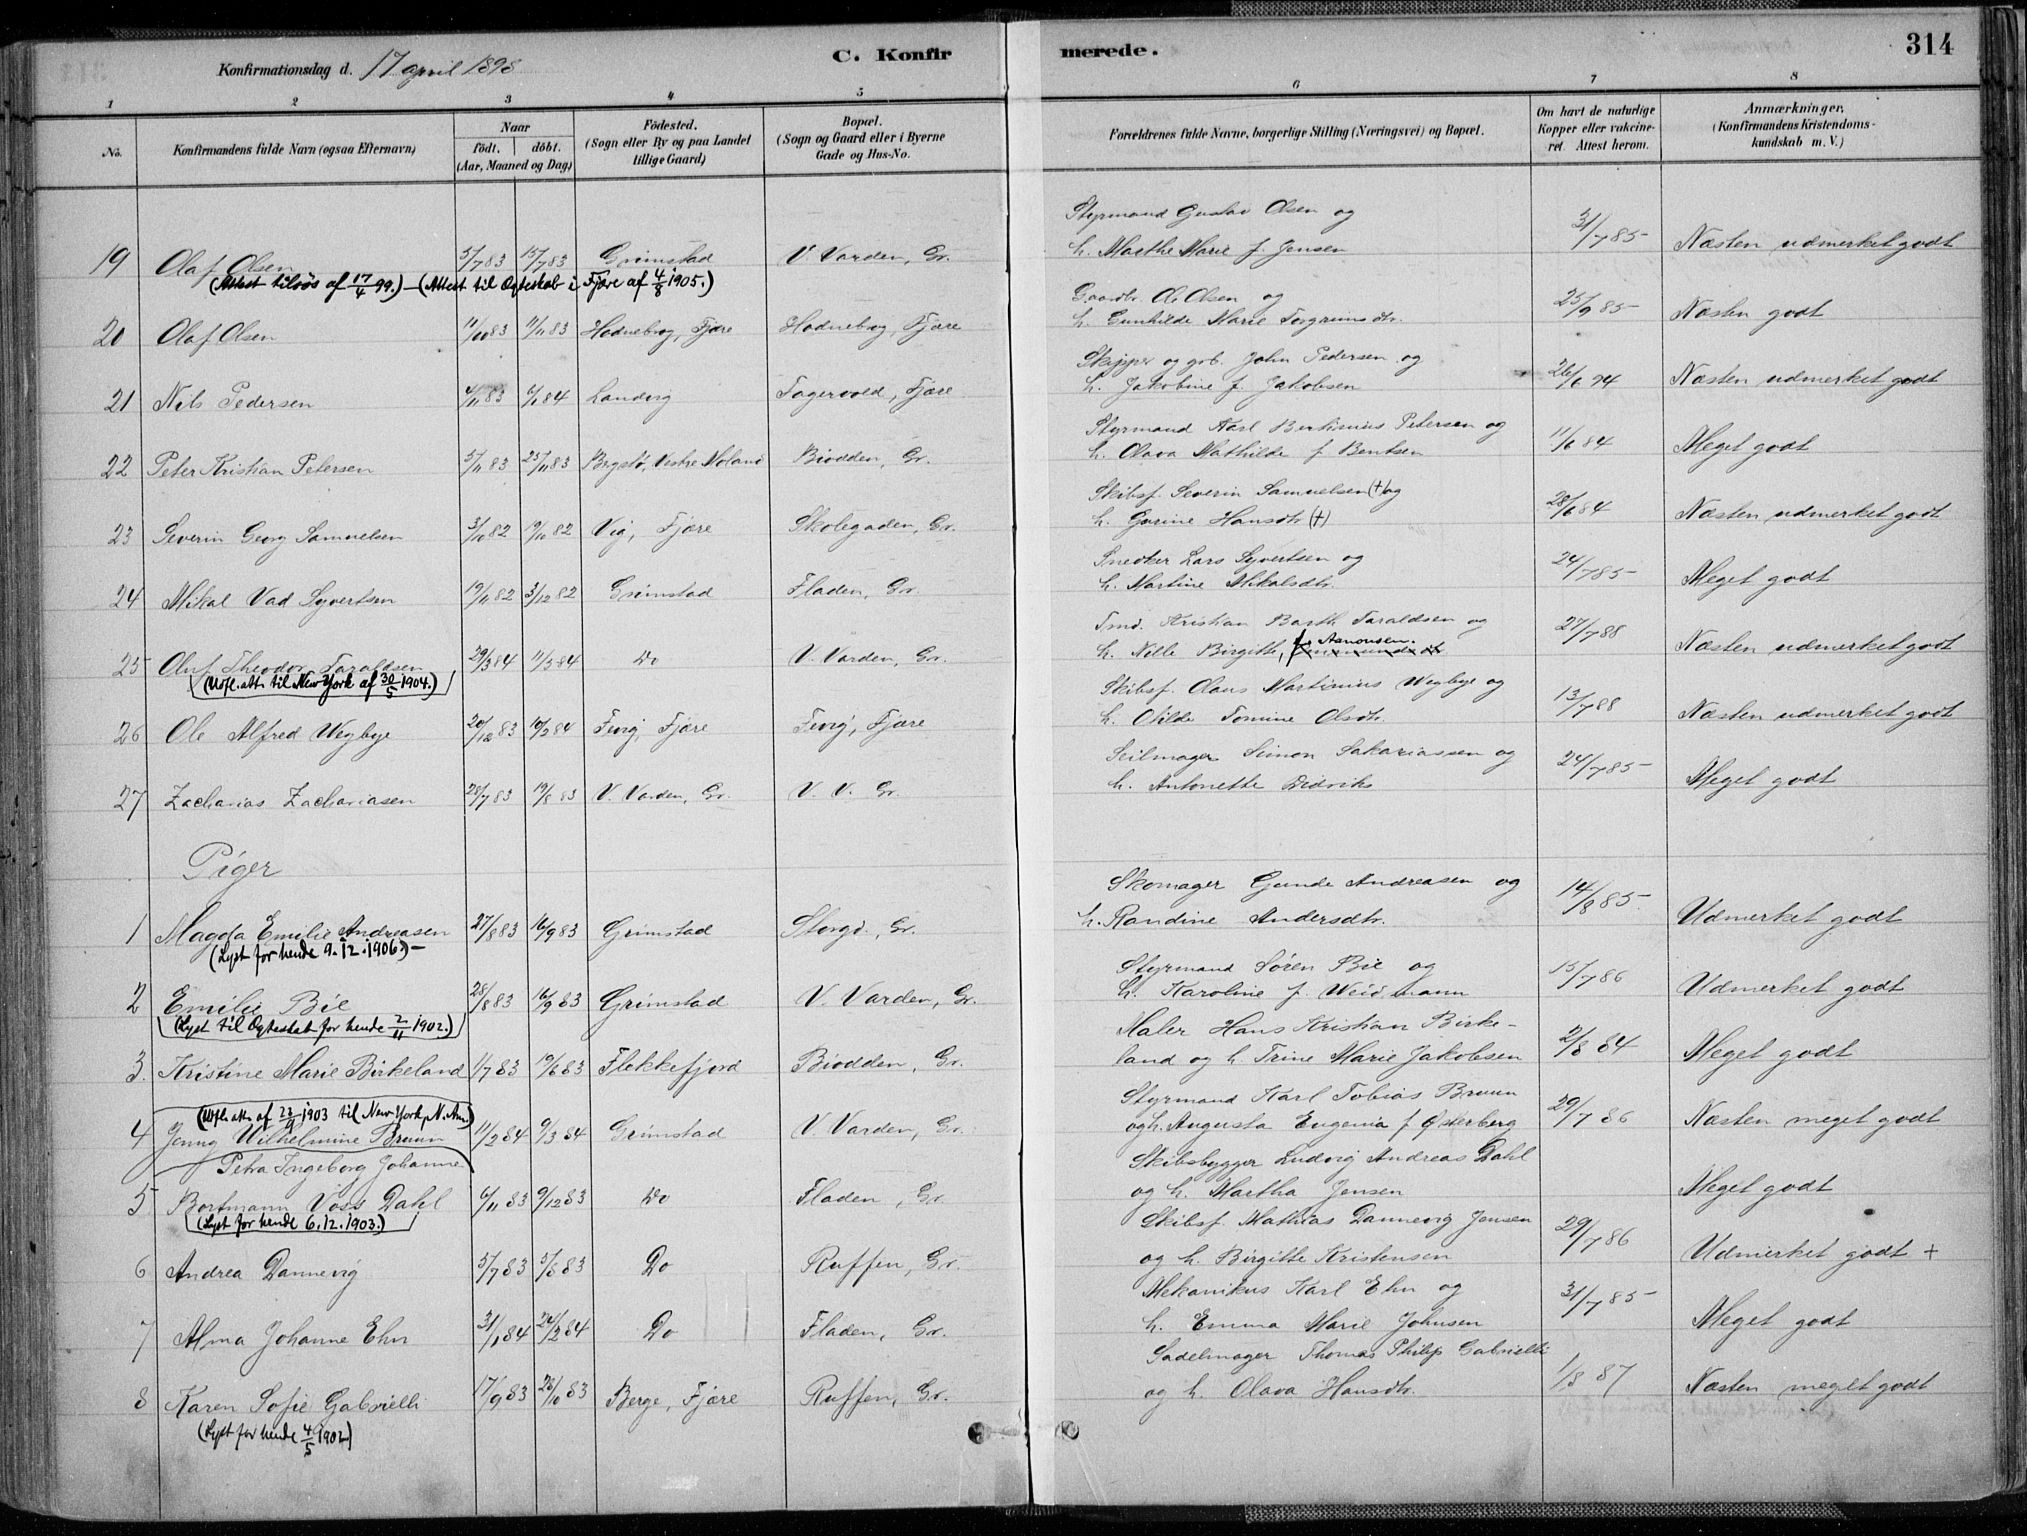 Konfirmationsdag d. 17 april 1898
C. Konfirmerede.
314
1 2 3 4 5 6 7 8
No.
Konfirmandens fulde Navn (ogsaa Efternavn)
Naar født. døbt. (Aar, Maaned og Dag)
Fødested. (Sogn eller By og paa Landet tillige Gaard)
Bopæl. (Sogn og Gaard eller i Byerne Gade og Hus-No.
Forældrenes fulde Navne, borgerlige Stilling (Næringsvei) og Bopæl.
Om havt de naturlige Kopper eller vakcineret. Attest herom.
Anmærkninger. (Konfirmandens Kristendomskundskab m. V.)
Styrmand Gustav Olsen og
19 Olaf Olsen 5/7 83 15/7 83 Grimstad V. Varden, Gr. h. Marthe Marie f. Jensen 31/7 85 Næsten udmerket godt
(Attest tilsøs af 17/4 99.) — (Attest til Ægteskab i Fjære af 4/8 1905.)
Gaardbr. Ole Olsen og
20 Olaf Olsen 11/10 83 11/11 83 Hodnebrog, Fjære Hodnebrog, Fjære h. Gunhilde Marie Torgrimsdtr. 25/9 85 Næsten godt
Skipper og grb. John Pedersen og
21 Nils Pedersen 4/11 83 6/1 84 Landvig Fagervold, Fjære h. Jakobine f. Jakobsen 26/6 94 Næsten udmerket godt
Styrmand Karl Bertinius Petersen og
22 Peter Kristian Petersen 5/11 83 25/11 83 Bergstø, Vestre Moland Biodden, Gr. h. Olava Mathilde f. Bentsen 11/6 84 Meget godt
Skibsf. Severin Samuelsen (+) og
23 Severin Georg Samuelsen 3/10 82 19/11 82 Vig, Fjære Skolegaden, Gr. h. Gurine Hansdtr (+) 28/6 84 Næsten udmerket godt
Snedker Lars Syvertsen og
24 Mikal Vad Syvertsen 19/11 82 3/12 82 Grimstad Fladen, Gr. h. Martine Mikalsdtr. 24/7 85 Meget godt
Tmd. Kristian Barth Taraldsen og
25 Oluf Theodor Taraldsen 29/3 84 11/5 84 Do V. Varden, Gr. h. Nille Birgitte, f. Aanonsen. 27/7 88 Næsten udmerket godt
(Udfl. att. til New York af 30/5 1904.)
Skibsf. Claus Martinius Wegbye og
26 Ole Alfred Wegbye 20/12 83 10/2 84 Fevig, Fjære Fevig, Fjære h. Otilde Tomine Olsdtr. 13/7 88 Næsten udmerket godt
Seilmager Simon Sakariassen og
27 Zacharias Zachariasen 28/7 83 19/8 83 V. Varden, Gr. V. V. Gr. h. Antonette Didriks 24/7 85 Meget godt
Piger
Skomager Gunde Andreasen og
1 Magda Emilie Andreasen 27/8 83 16/9 83 Grimstad Storgd., Gr. h. Randine Andersdtr. 14/8 85 Udmerket godt
(Lyst for hende 9.12.1906.) —
Styrmand Søren Bie og
2 Emilie Bie 28/8 83 16/9 83 Grimstad V. Varden, Gr. h. Karoline f. Weidmann 15/7 86 Udmerket godt
(Lyst til Ægteskab for hende 2/11 1902.)
Maler Hans Kristian Birke-
3. Kristine Marie Birkeland 1/7 83 19/8 83 Flekkefjord Biodden, Gr. land og h. Trine Marie Jakobsen 2/8 84 Meget godt
(Udfl. att. af 23/9 1903 til New York, N. Am.) Styrmand Karl Tobias Bruun
4 Jenny Wilhelmine Bruun 11/2 84 9/3 84 Grimstad V. Varden, Gr. og h. Augusta Eugenia f. Østerberg 29/7 86 Næsten meget godt
Petra Ingeborg Johanne Skibsbygger Ludvig Andreas Dahl
5 Bortmann Voss Dahl 6/11 83 9/12 83 Do Fladen, Gr. og h. Martha Jensen Meget godt
(Lyst for hende 6.12.1903.)
Skibsf. Mathias Dannevig Jensen
6 Andrea Dannevig 5/7 83 5/8 83 Do Ruffen, Gr. og h. Birgitte Kristensen 29/7 86 Udmerket godt +
Mekanikus Karl Ehn og
7 Alma Johanne Ehn 31/1 84 24/2 84 Do Fladen, Gr. h. Emma Marie Johnsen 31/7 85 Meget godt
Sadelmager Thomas Philip Gabrielli
8 Karen Sofie Gabrielli 17/9 83 28/10 83 Berge, Fjære Ruffen, Gr. og h. Olava Hansdtr. 1/8 87 Næsten meget godt
(Lyst for hende 4/5 1902)